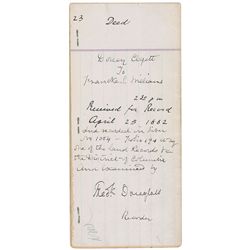 23
Deed
Dorsey Clagett
To
Franklin Williams
2:20 pm
Received for Record
April 25 1882
and recorded in Liber
No 1004 – folio 194
one of the Land Records for
the District of Columbia
and examined by
Fredk Douglass
Recorder